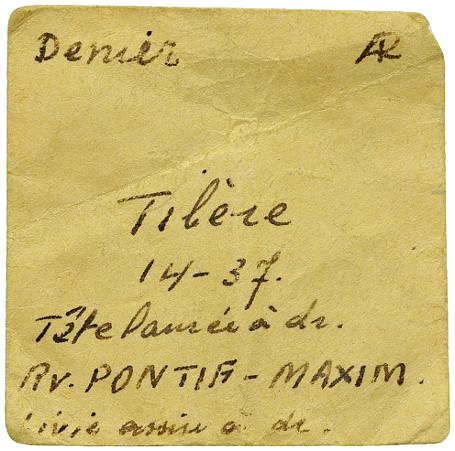 Denier AR
Tibère
14-37.
Tête laurée à dr.
Rv. PONTIF - MAXIM.
Livie assise à dr.